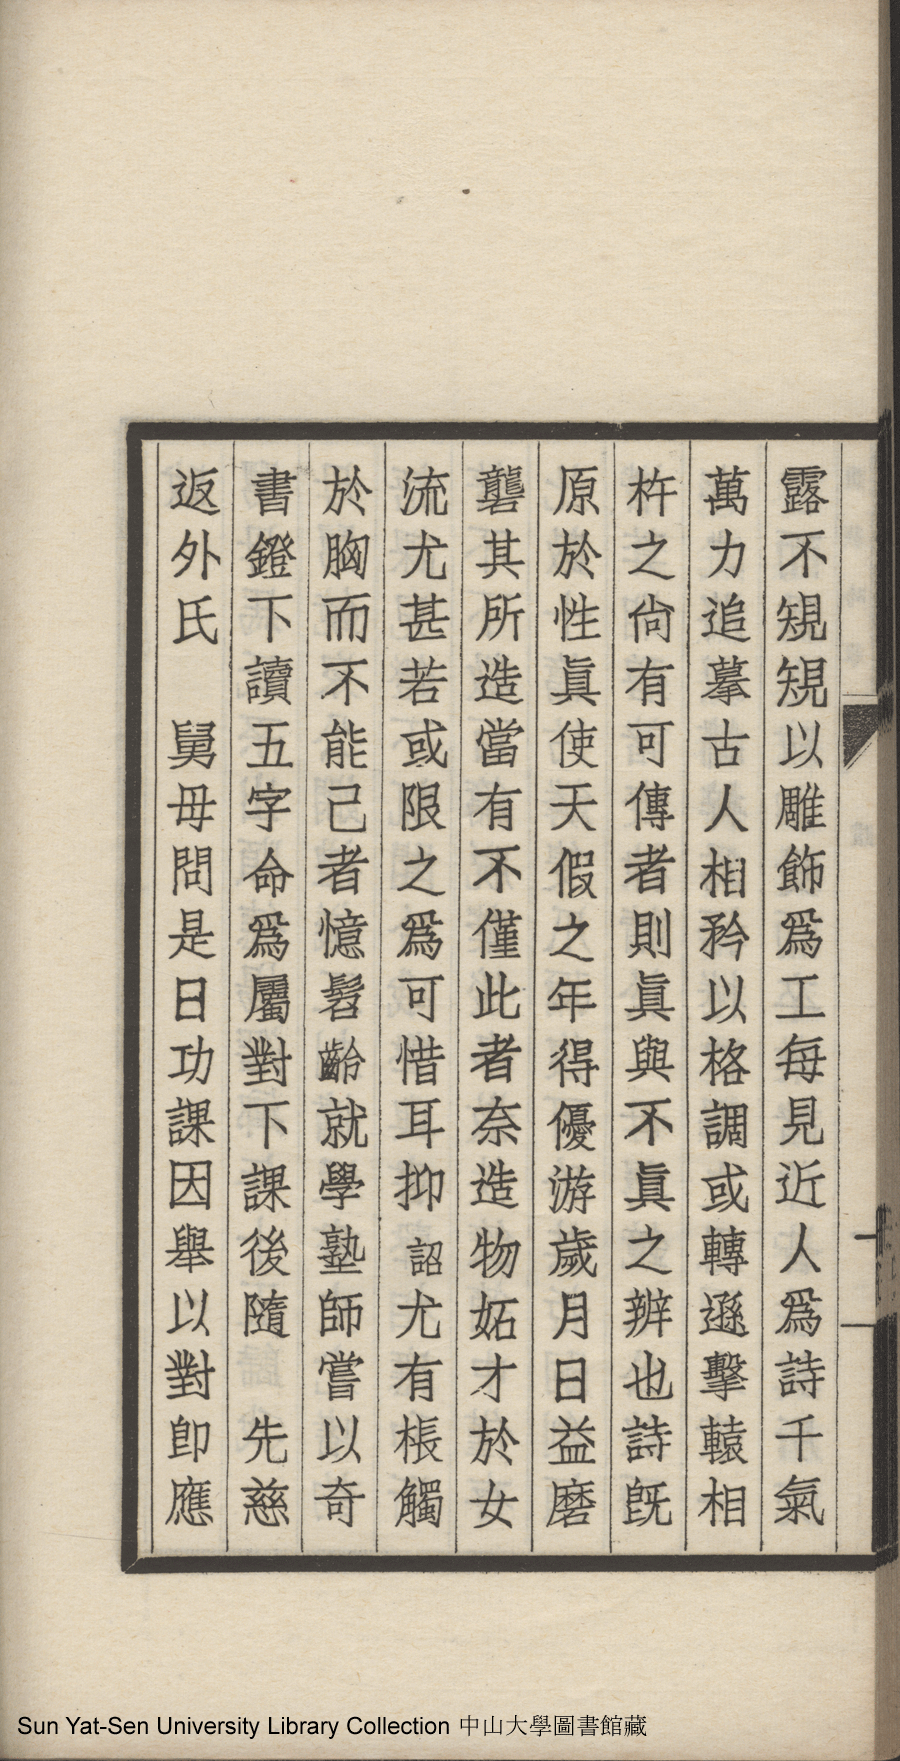 露不規規以雕飾爲工每見近人爲詩千氣
萬力追摹古人相矜以格調或轉遜擊轅相
杵之尙有可傳者則眞與不眞之辨也詩旣
原於性眞使天假之年得優游歲月日益磨
礱其所造當有不僅此者奈造物妬才於女
流尤甚若或限之爲可惜耳抑詔尤有棖觸
於胸而不能己者憶髫齡就學塾師嘗以奇
書鐙下讀五字命爲屬對下課後隨 先慈
返外氏 舅母問是日功課因舉以對卽應
Sun Yat-Sen University Library Collection 中山大學圖書館藏